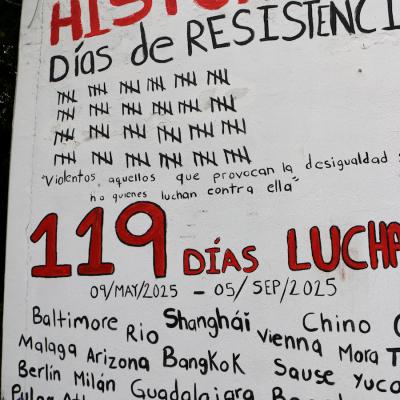 Días de RESISTENCI
"Violentos aquellos que provocan la desigualdad
no quienes luchan contra ella"
119 DÍAS LUCHA
09/MAY/2025 - 05/SEP/2025
Baltimore Rio Shanghái Vienna Chino
Malaga Arizona Bangkok Sause Mora
Berlín Milán Guadalajara Yuca